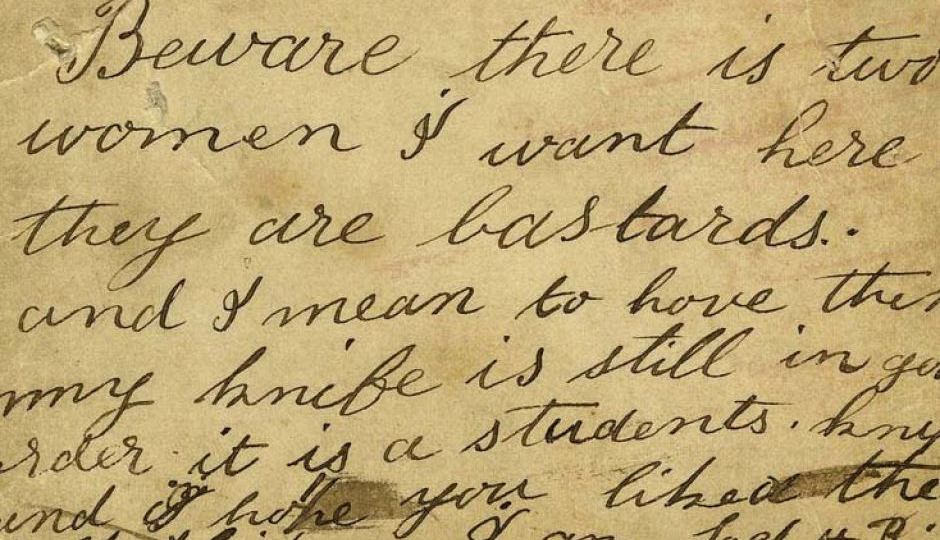 Beware there is two
women I want here
they are bastards.
and I mean to hove them
my knife is still in goo
rder it is a students. kny
and I hope you liked the